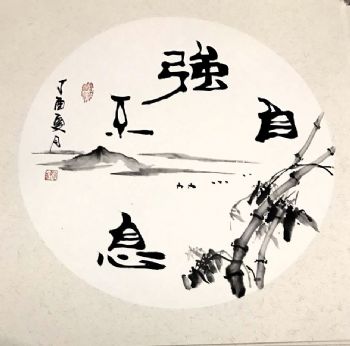 自強不息
丁酉夏月